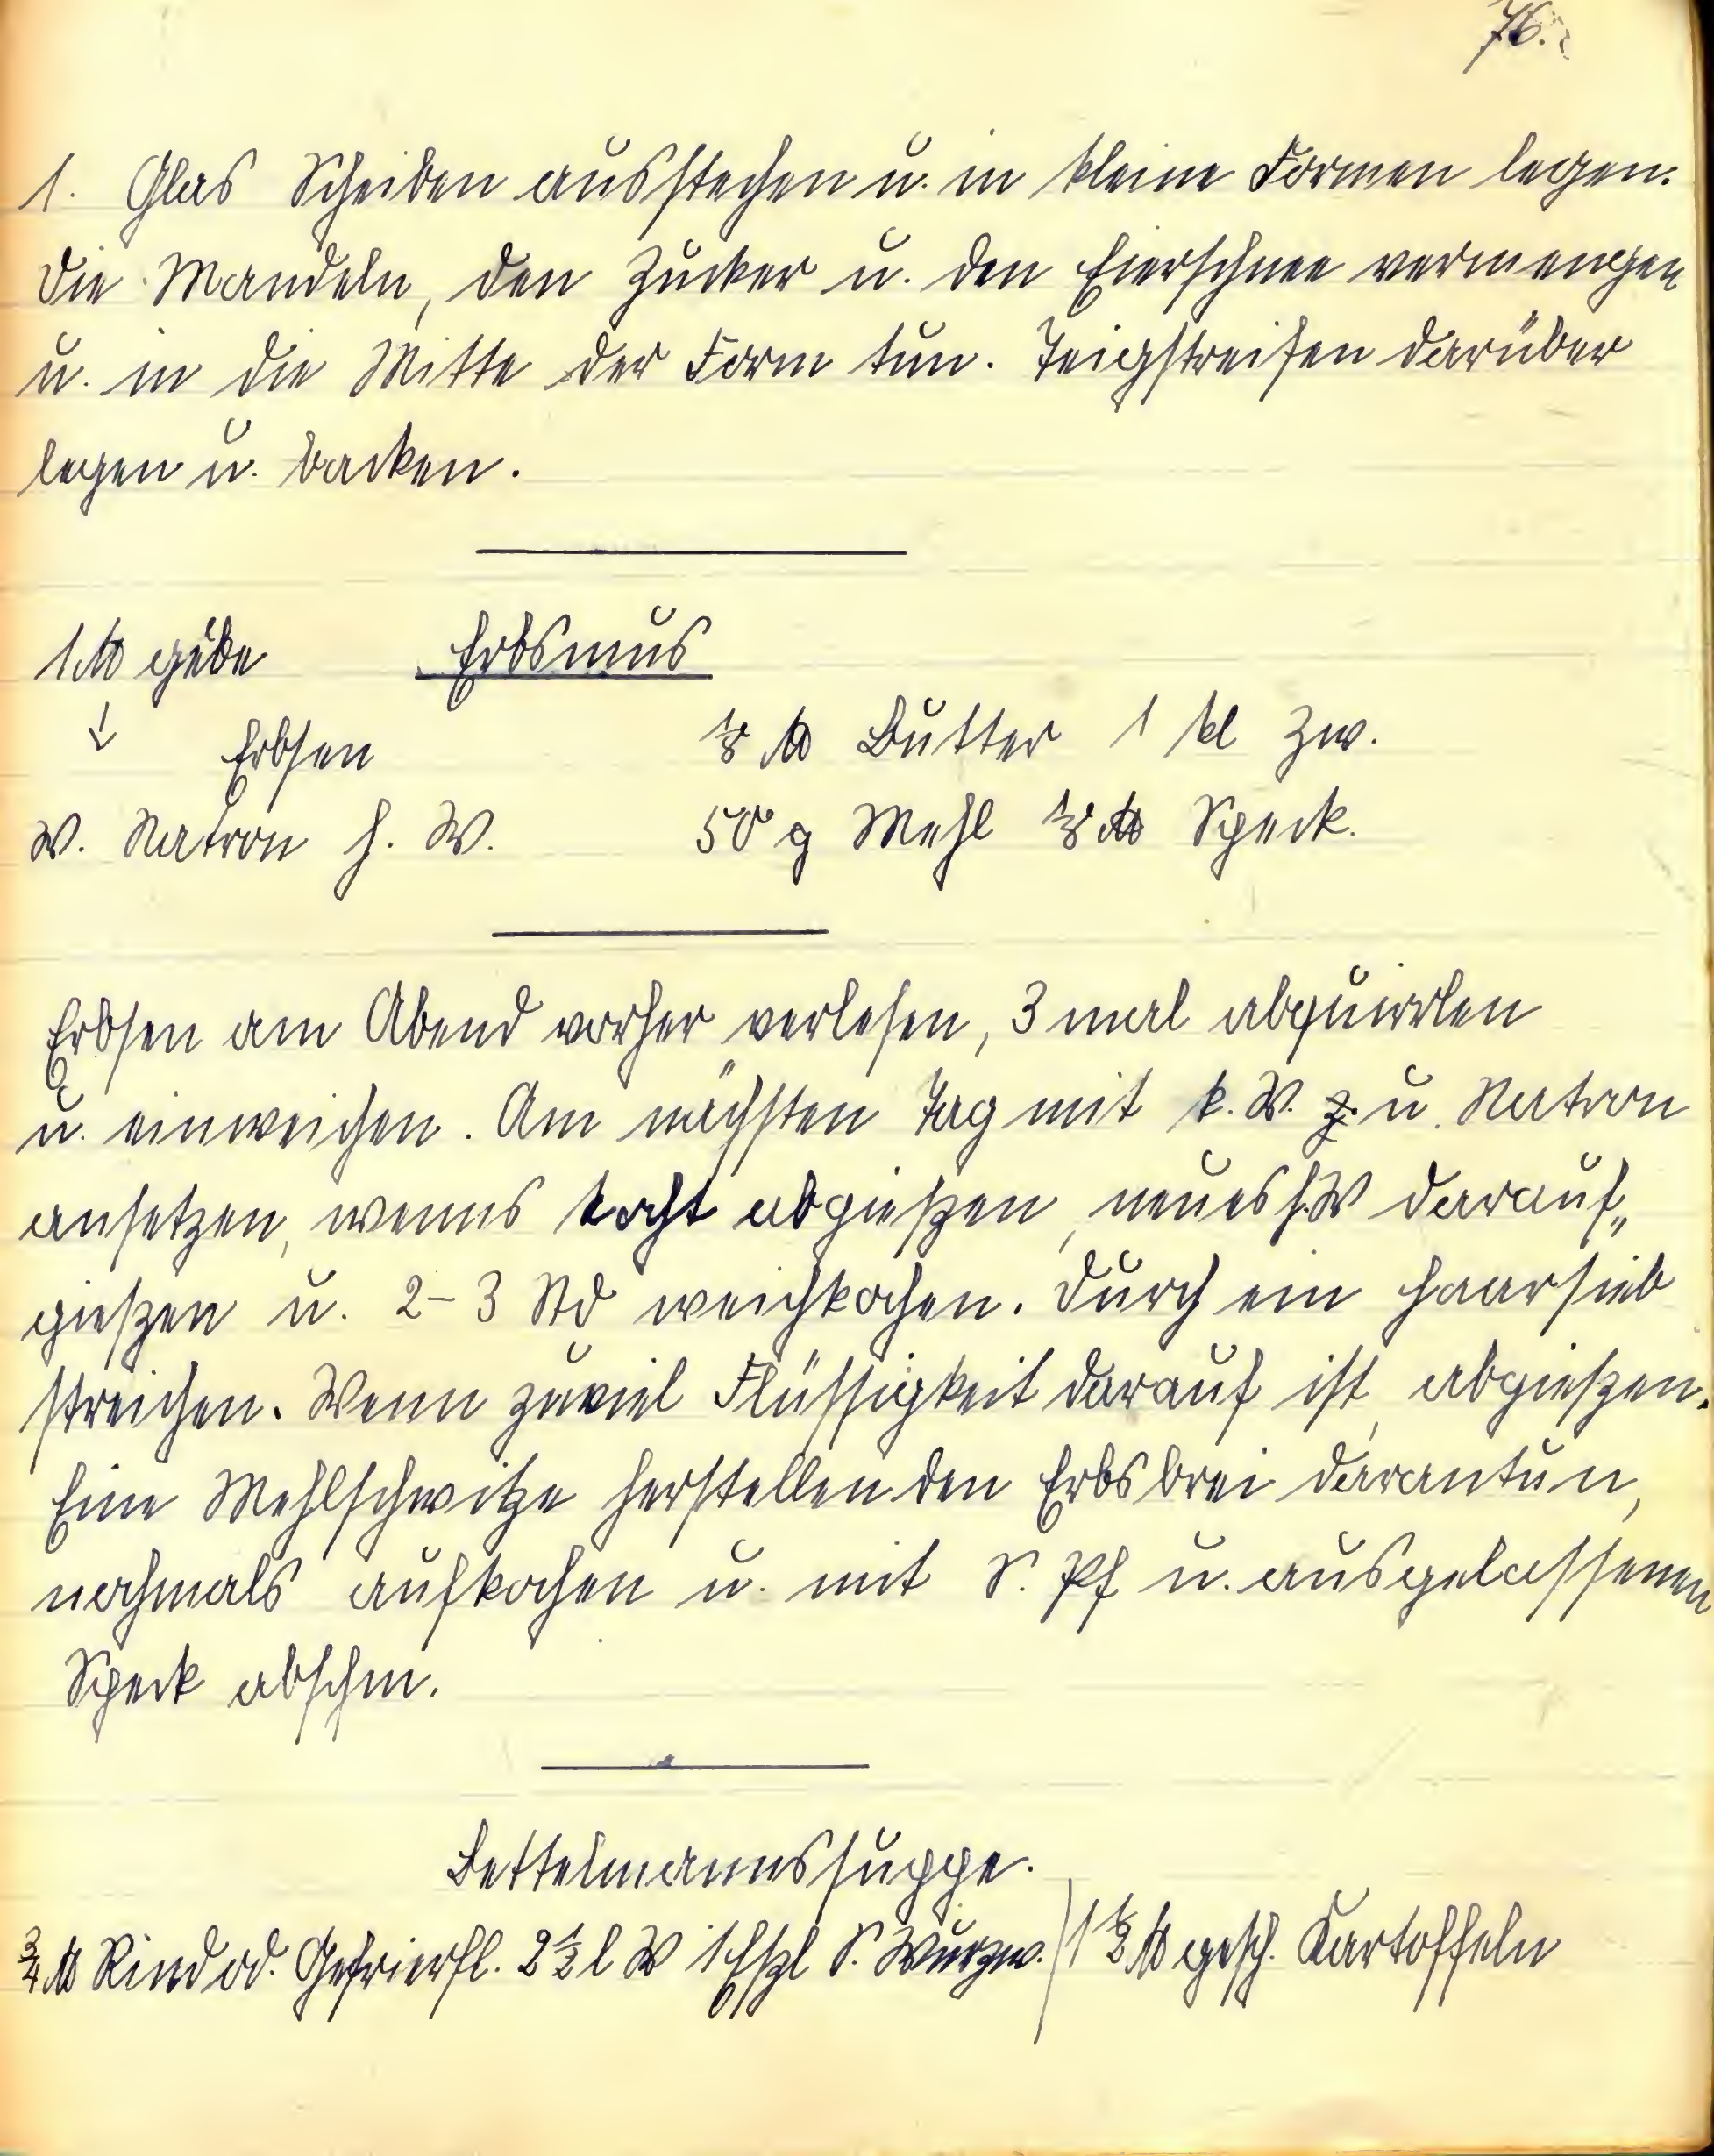 76.
1. Glas Scheiben ausstechen u. in kleine Formen legen.
Die Mandeln, den Zucker u. den Eierschnee vermengen
u. in die Mitte der Form tun. Teigstreifen darüber
legen u. backen.
Erbsmus
1 ℔ gelbe
↓ Erbsen
1/8 ℔ Butter 1 kl Zw.
W. Natron h. W.
50 g Mehl 1/8 ℔ Speck.
Erbsen am Abend vorher verlesen, 3 mal abquirlen
u. einweichen. Am nächsten Tag mit k. W. u. Natron
ansetzen, wenns kocht abgießen, neues h. W darauf„
gießen u. 2–3 Std weichkochen. Durch ein Haarsieb
streichen. Wenn zuviel Flüssigkeit darauf ist, abgießen.
Eine Mehlschwitze herstellen den Erbsbrei darantun,
nochmals aufkochen u. mit S. Pf u. ausgelassenen
Speck abschm.
Bettelmannssuppe.
3/4 ℔ Rind od. Gefrierfl. 2 1/2 l W 1 Eßl S. Wurzw. / 1 1/2 ℔ gesch. Kartoffeln